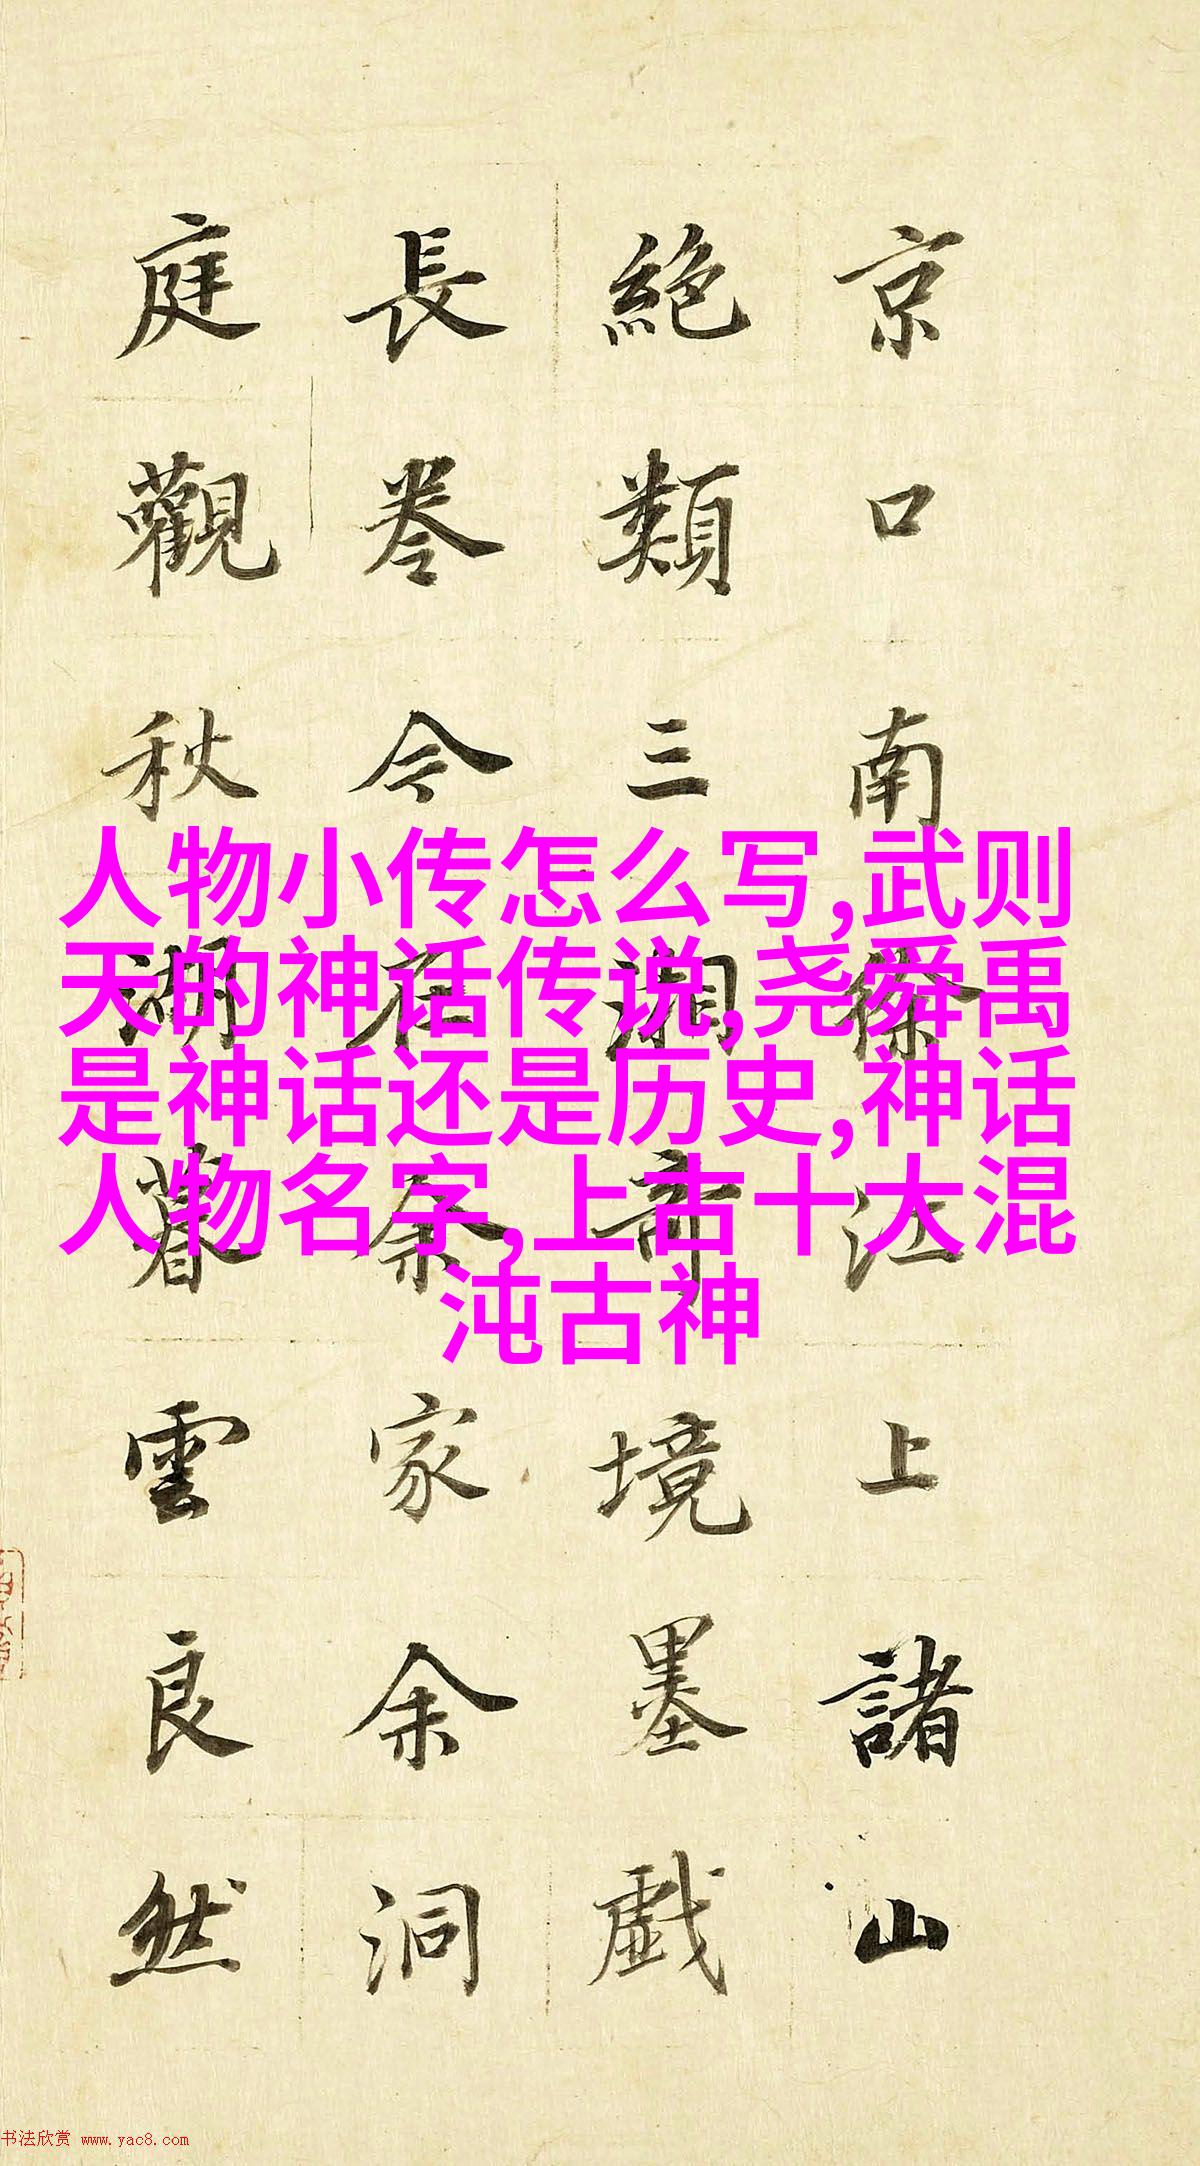 京口南徐江上諸山
絶類三湘奇境墨戲
長卷今在余家余洞
庭觀秋湖暮雲良然
人物小传怎么写,武则
天的神话传说,尧舜禹
是神话还是历史,神话
人物名字,上古十大混
沌古神
书法欣赏 www.yac8.com